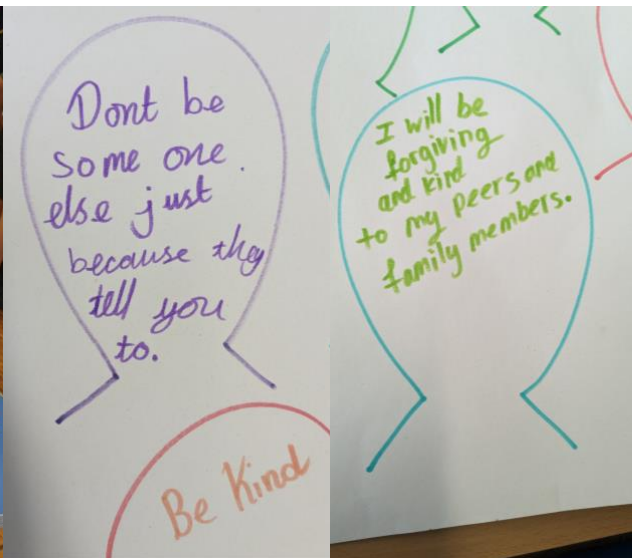 Dont be
some one.
else just
because they
tell you
to.
Be Kind
I will be
forgiving
and kind
to my peers and
family members.